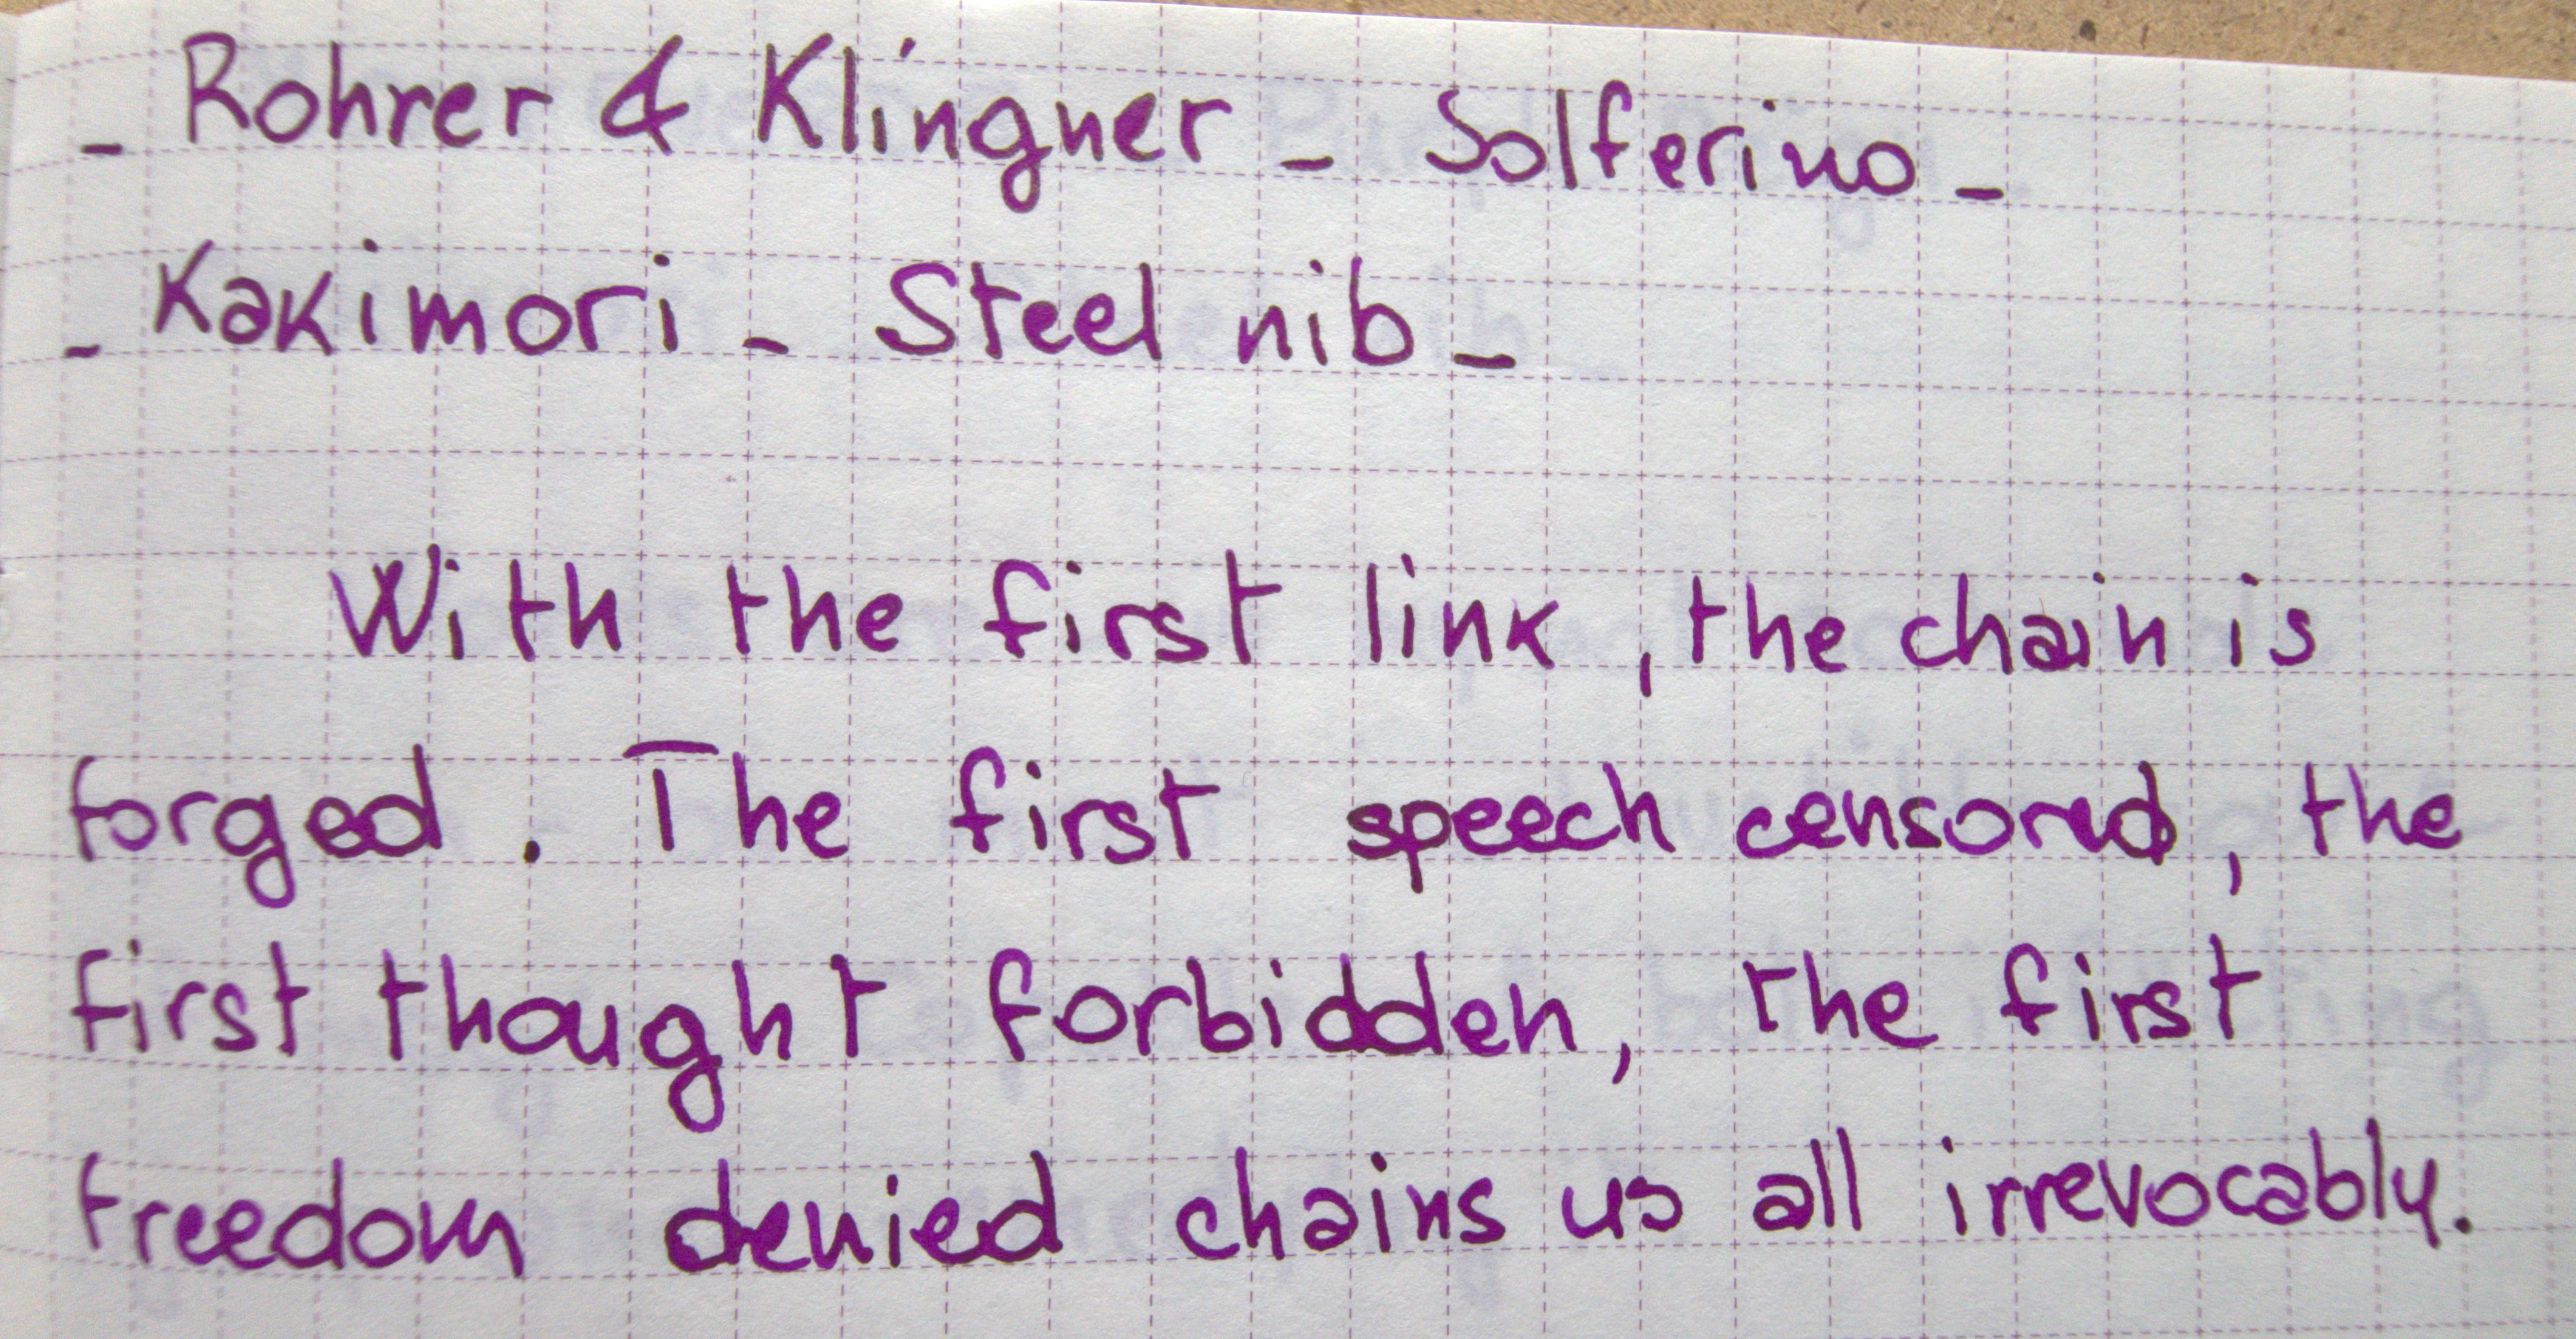 - Rohrer & Klingner - Solferino -
- Kakimori - Steel nib -
With the first link, the chain is
forged. The first speech censored, the
first thought forbidden, the first
freedom denied chains us all irrevocably.